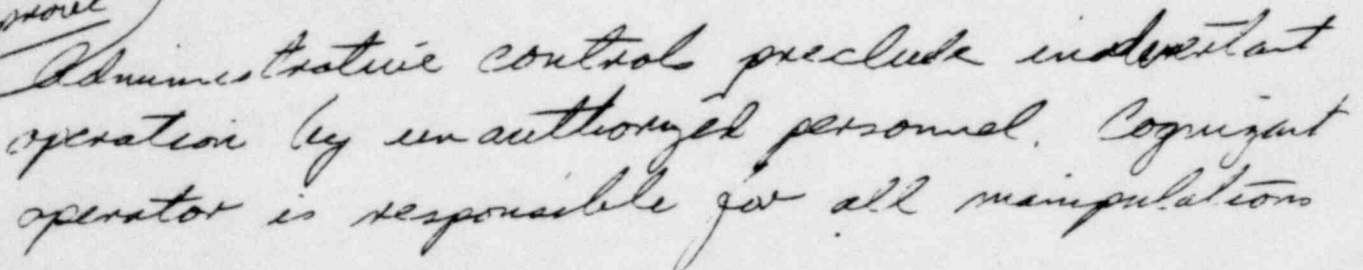 Administrative controls preclude inadvertant
operation by unauthorized personnel. Cognizant
operator is responsible for all manipulations